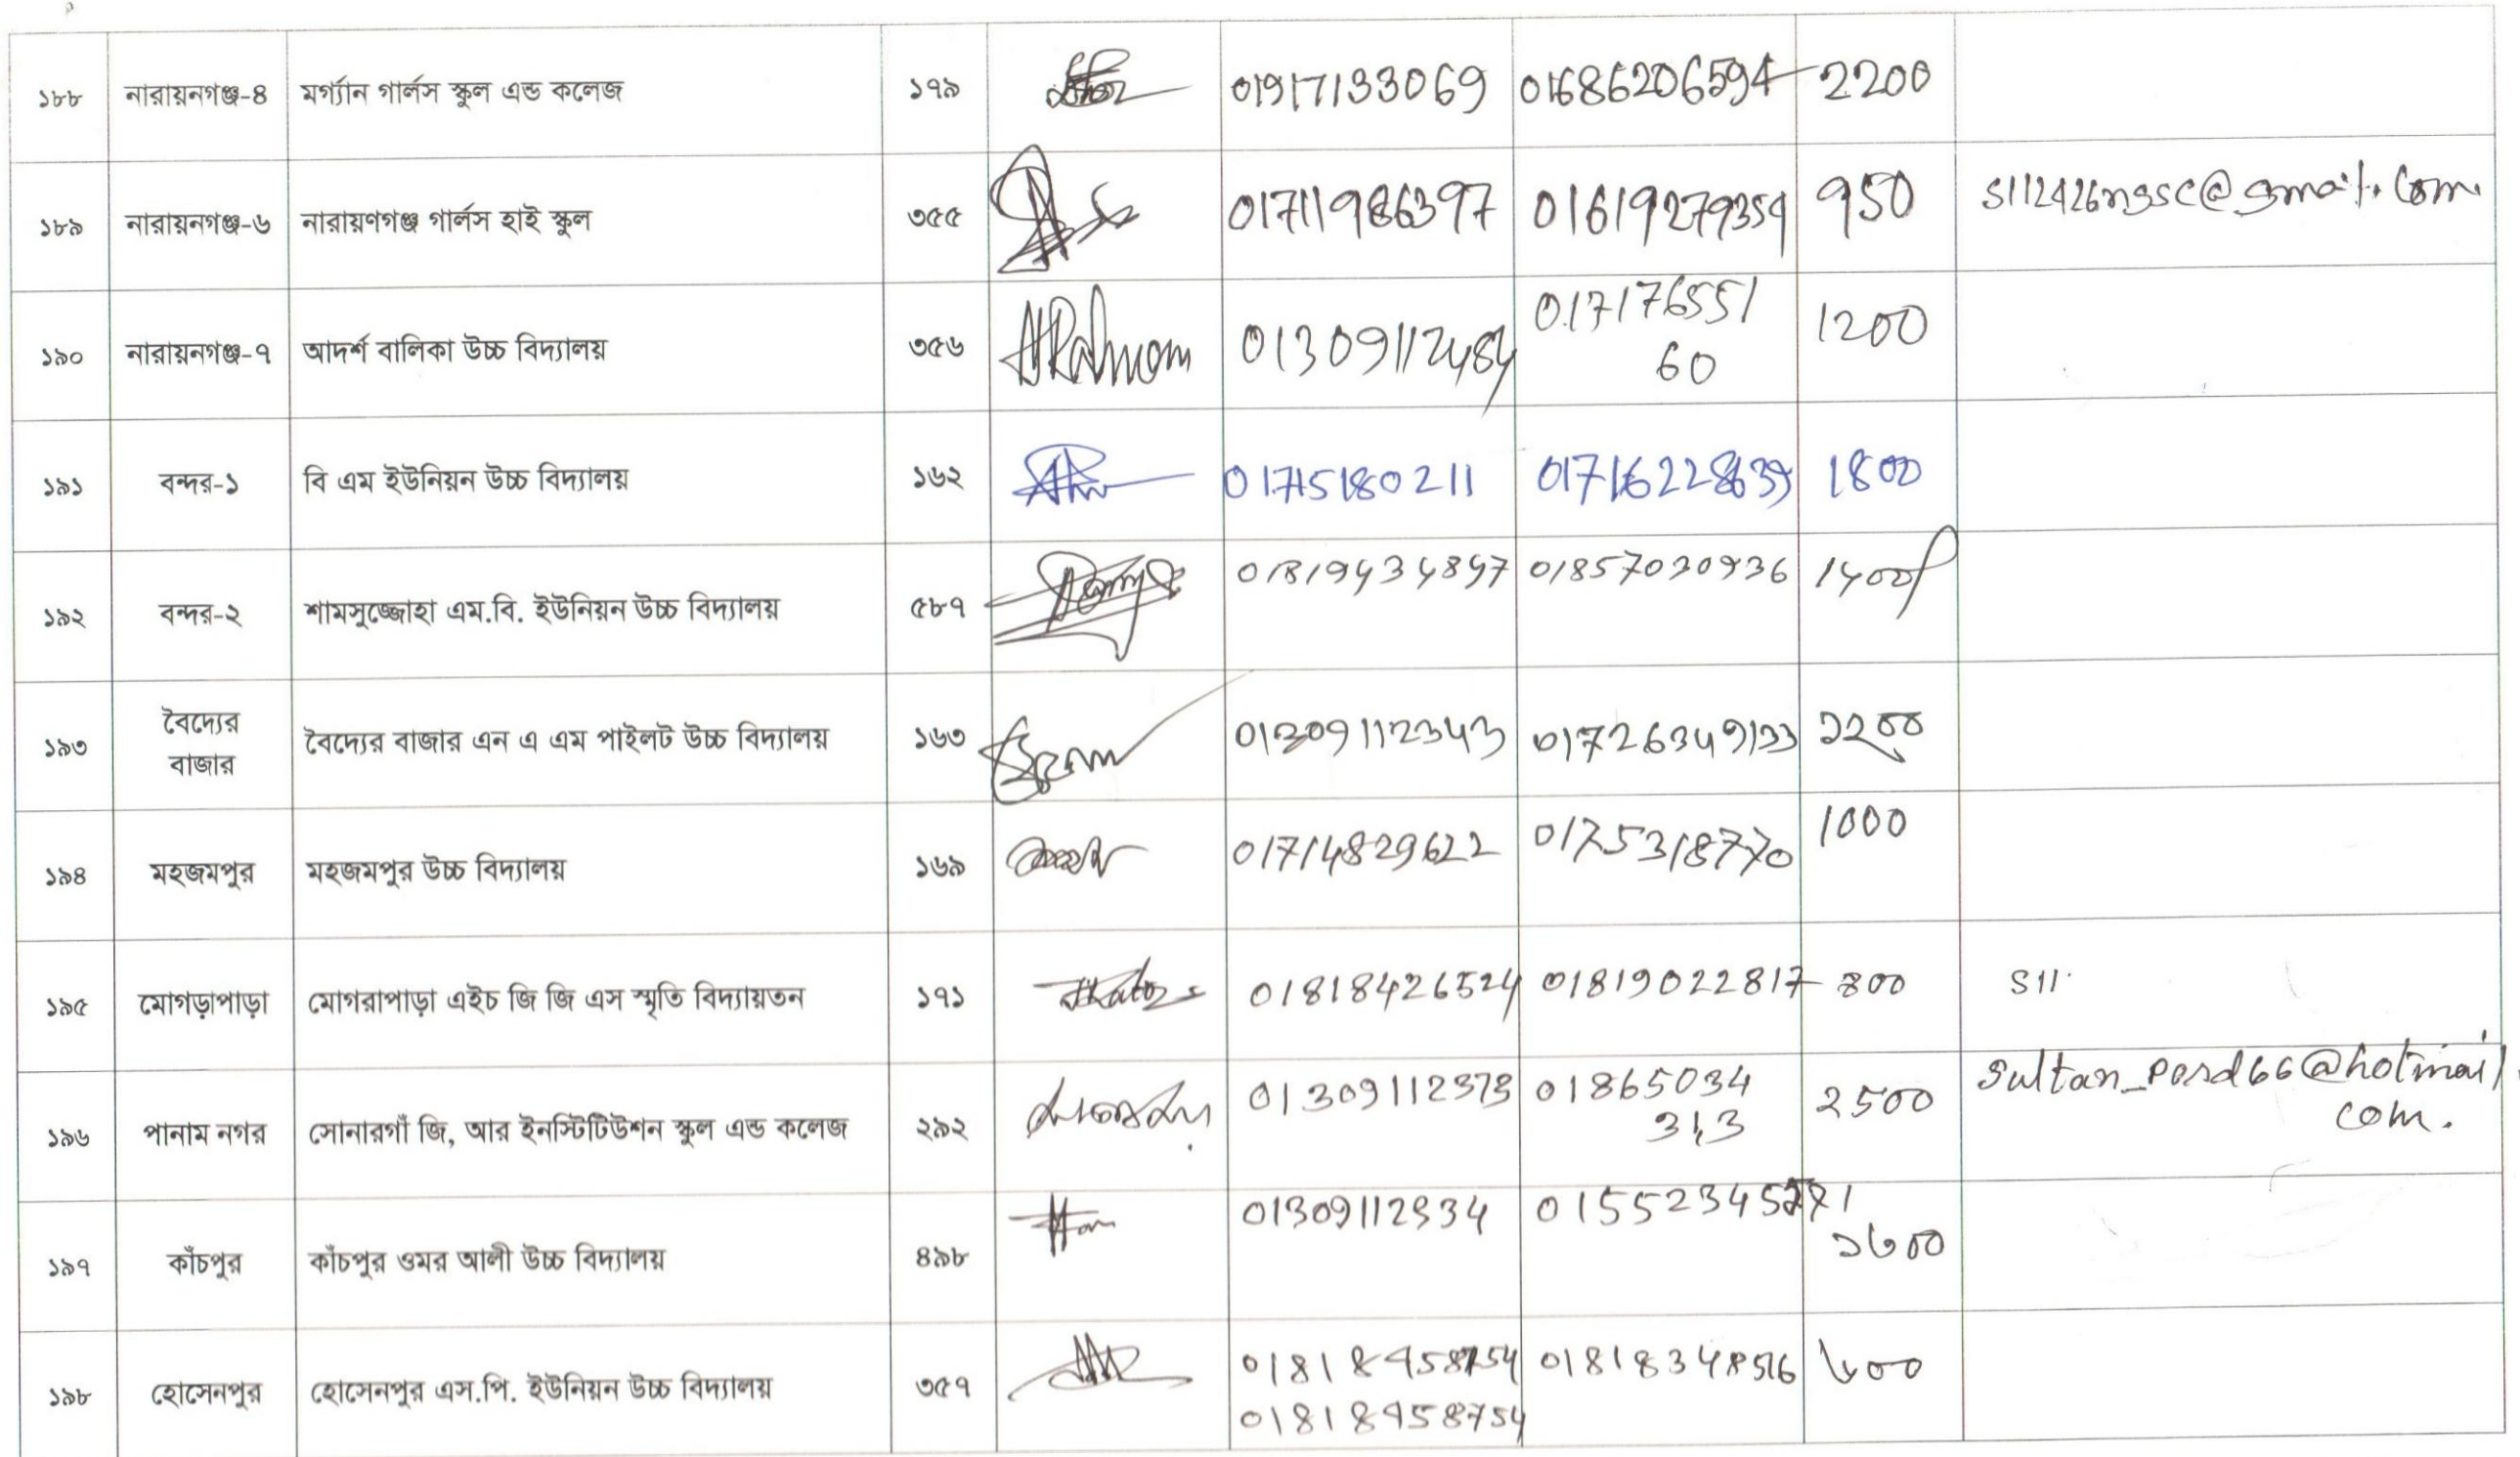 ১৮৮ নারায়নগঞ্জ-৪ মর্গ্যান গার্লস স্কুল এন্ড কলেজ ১৭৯ 01917133069 01686206594 2200
১৮৯ নারায়নগঞ্জ-৬ নারায়ণগঞ্জ গার্লস হাই স্কুল ৩৫৫ 01711986397 01619279359 950 S112426ngsc@gmail.com
১৯০ নারায়নগঞ্জ-৭ আদর্শ বালিকা উচ্চ বিদ্যালয় ৩৫৬ ARahmam 01309112484 017176551 1200
60
১৯১ বন্দর-১ বি এম ইউনিয়ন উচ্চ বিদ্যালয় ১৬২ 01715180211 1800
১৯২ বন্দর-২ শামসুজ্জোহা এম.বি. ইউনিয়ন উচ্চ বিদ্যালয় ৫৮৭ 01819434897 01857030936 1400
বৈদ্যের
১৯৩ বৈদ্যের বাজার এন এ এম পাইলট উচ্চ বিদ্যালয় ১৬৩ 01309112343 01726349133 ১২০০
বাজার
১৯৪ মহজমপুর মহজমপুর উচ্চ বিদ্যালয় ১৬৯ 01714829622 01725318770 1000
১৯৫ মোগড়াপাড়া মোগরাপাড়া এইচ জি জি এস স্মৃতি বিদ্যায়তন ১৭১ 01818426524 01819022817 800 S11
১৯৬ পানাম নগর সোনারগাঁ জি, আর ইনস্টিটিউশন স্কুল এন্ড কলেজ ২৯২ 01309112373 01865034 2500 Sultan_pord66@hotmail.
313 com.
১৯৭ কাঁচপুর কাঁচপুর ওমর আলী উচ্চ বিদ্যালয় ৪৯৮ 01309112334 ১৬০০
১৯৮ হোসেনপুর হোসেনপুর এস.পি. ইউনিয়ন উচ্চ বিদ্যালয় ৩৫৭ 01818958754 01818348516 ৬০০
01818958754